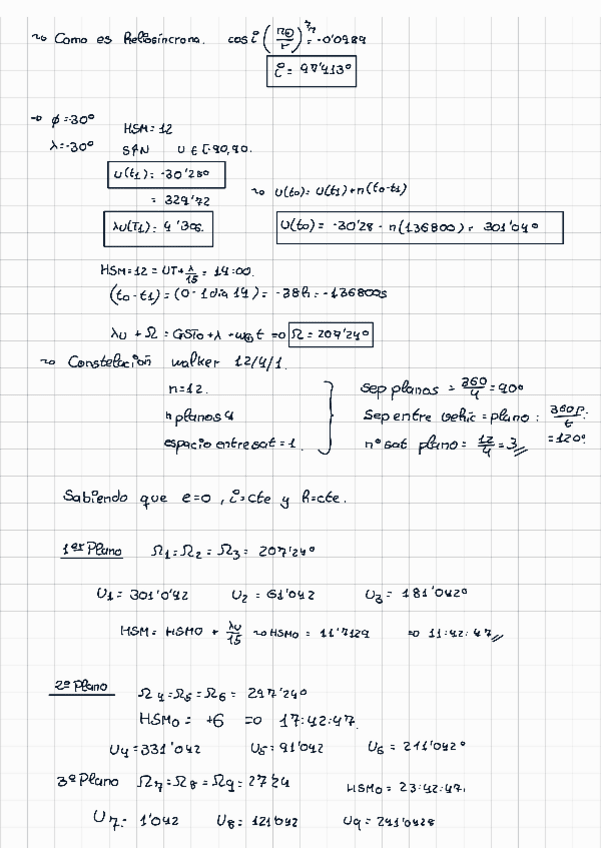 ~o Como es heliosíncrona. cos i (R⊕/r)^7/2 = -0'0989
i = 97'413º
-o ϕ=-30º HSM=12
λ=-30º SAN U ∈ [-90,90.
U(t1) = -30'280
= 329'72 ~o U(to) = U(t1)+n(to-t1)
λu(T1) = 4'306. U(to) = -30'28 - n(136800) = 301'04º
HSM=12 = UT+λ/15 = 14:00.
(to-t1) = (0-1dia 14) = -38h = -136800s
λu + Ω = GSTo+λ -ω⊕t =o Ω = 207'24º
~o Constelación walker 12/4/1.
n=12. sep planos = 360/4 = 90º
nplanos 4 Sep entre vehic = plano : 360P/t = 120º
espacio entre sat = 1. nº sat plano = 12/4 = 3
Sabiendo que e=0, i=cte y h=cte.
1er Plano Ω1=Ω2=Ω3= 207'24º
U1= 301'0'42 U2 = 61'042 U3 = 181'042º
HSM= HSMO + λu/15 ~o HSMo = 11'7129 =o 11:42:47
2º Plano Ω4=Ω5=Ω6= 297'24º
HSMo = +6 =o 17:42:47
U4=331'042 U5=91'042 U6= 211'042º
3º Plano Ω7=Ω8=Ω9=27'24 HSMo= 23:42:47.
U7= 1'042 U8= 121'042 U9= 241'0428